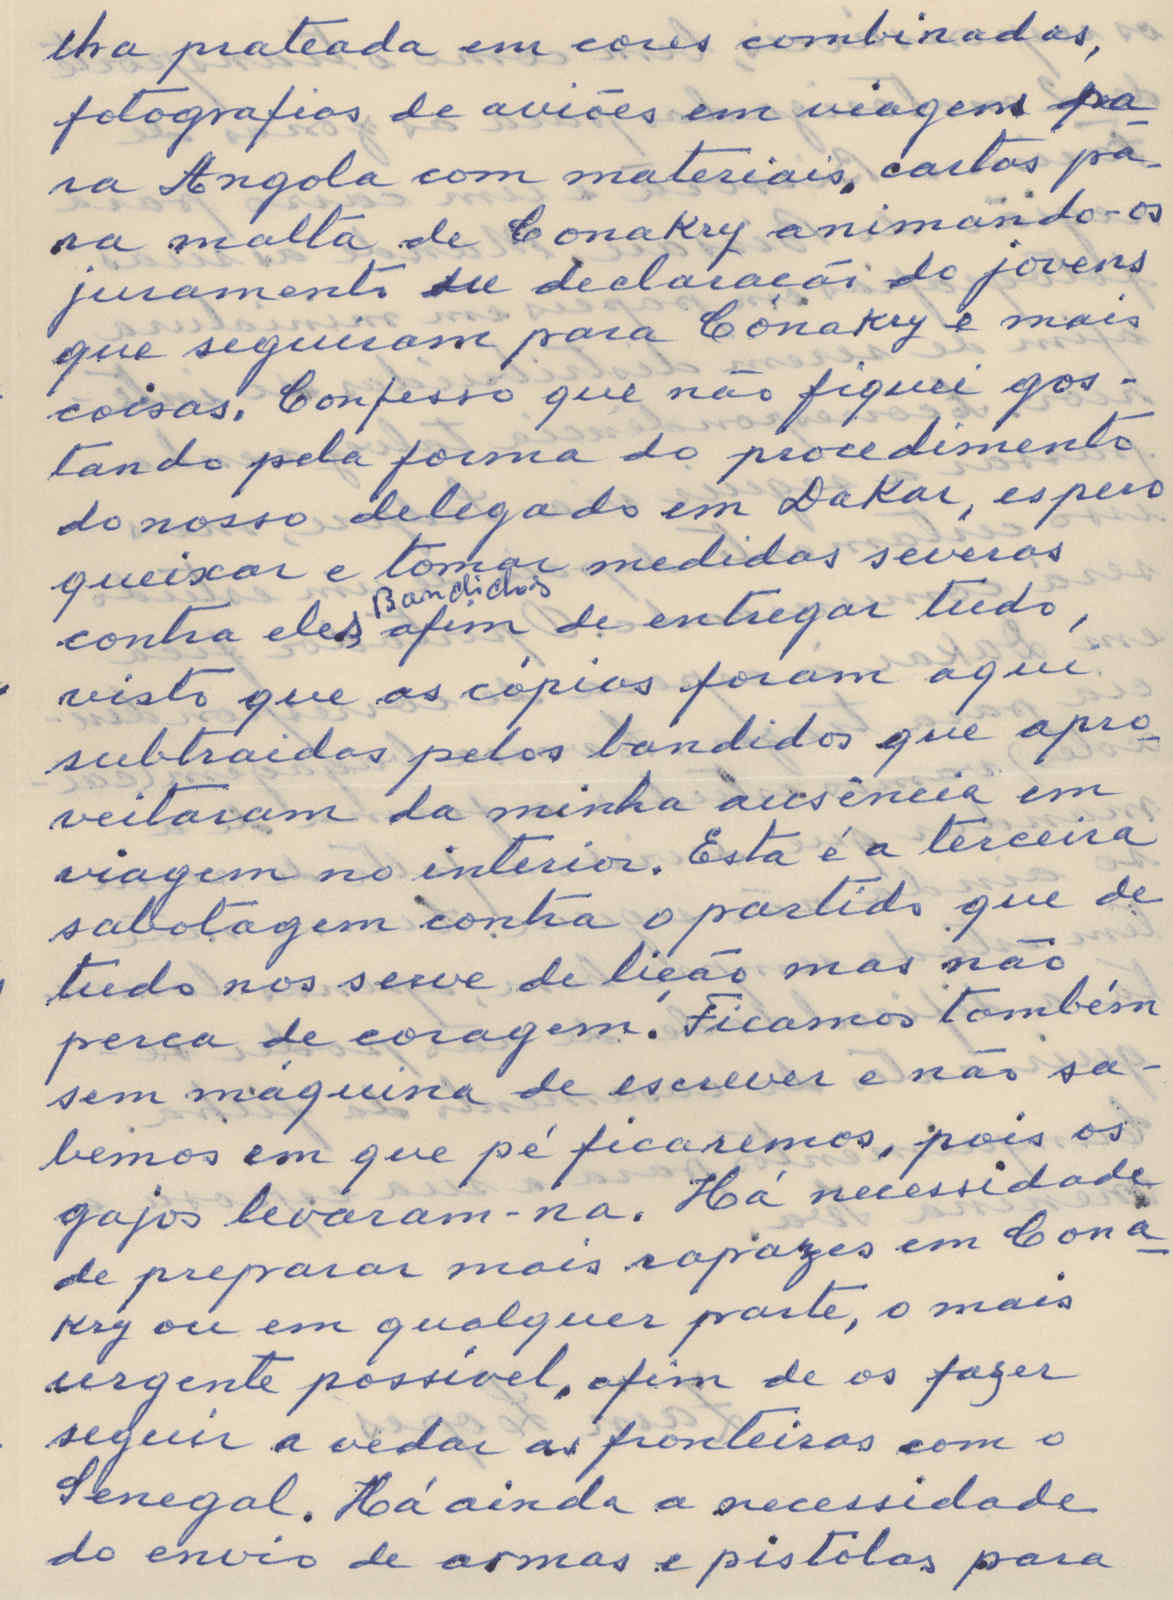 lha prateada em cores combinadas,
fotografias de aviões em viagens pa-
ra Angola com materiais, cartas pa-
ra malta de Conakry animando-os
juramento ou declaração do jovens
que seguiram para Cónakry e mais
coisas. Confesso que não fiquei gos-
tando pela forma do procedimento
do nosso delegado em Dakar, espero
queixar e tomar medidas severas
contra eles Bandidos afim de entregar tudo,
visto que as cópias foram aqui
subtraidas pelos bandidos que apro-
veitaram da minha ausência em
viagem no interior. Esta é a terceira
sabotagem contra o partido que de
tudo nos serve de lição mas não
perca de coragem. Ficamos também
sem máquina de escrever e não sa-
bemos em que pé ficaremos, pois os
gajos levaram-na. Há necessidade
de preparar mais rapazes em Cona-
kry ou em qualquer parte, o mais
urgente possível, afim de os fazer
seguir a vedar as fronteiras com o
Senegal. Há ainda a necessidade
do envio de armas e pistolas para